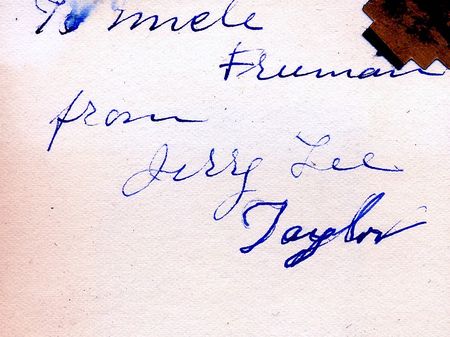 To Uncle
Fruman
from
Jerry Lee
Taylor